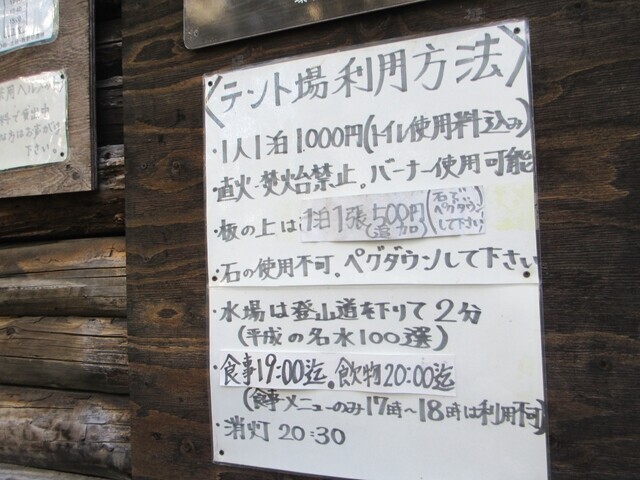 〈テント場利用方法〉
・1人1泊1.000円(トイレ使用料込み)
・直火・焚火台禁止。バーナー使用可能
・板の上は1泊1張500円(追加)(石でペグダウンして下さい)
・石の使用不可。ペグダウンして下さい
・水場は登山道を下りて2分
(平成の名水100選)
・食事19:00迄。飲物20:00迄
(食事メニューのみ17時~18時は利用不可)
・消灯20:30
下さい